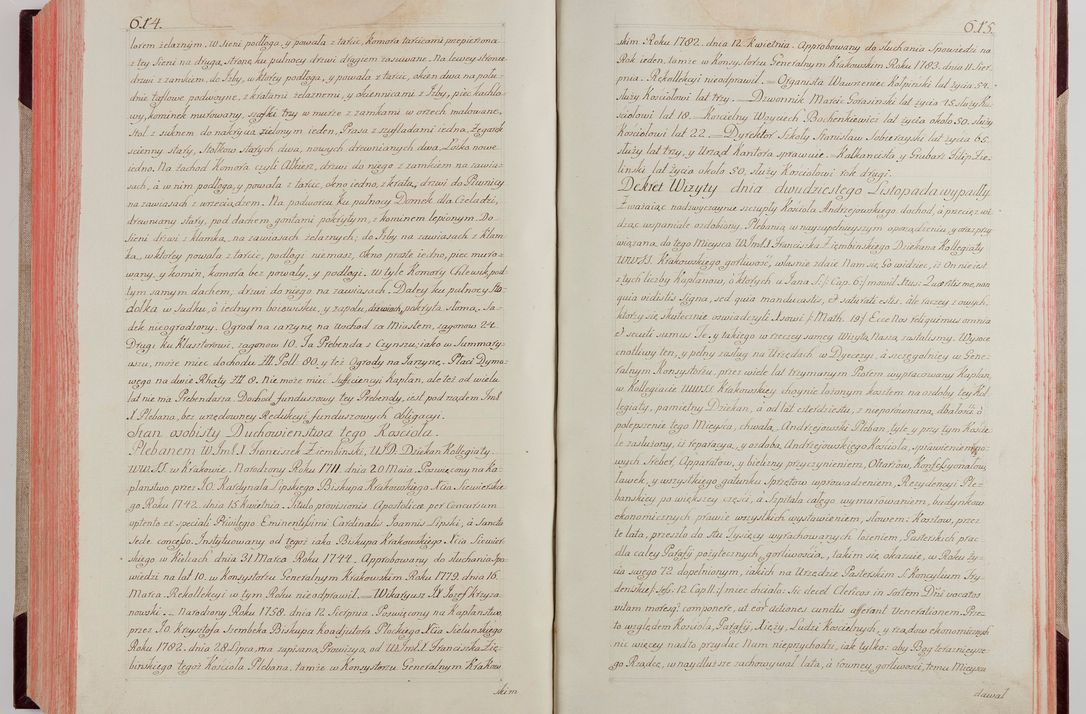 614.
lorem żelaznym. w Sieni podłoga, y powała z tarcic, komora tarcicami przepierzona
z tey Sieni na drugą stronę ku pułnocy drzwi drągiem zasuwane. Na lewey stronie
drzwi z zamkiem do Izby, w ktorey podłoga, y powała z tarcic, okien dwa na połu-
dnie taflowe podwoyne, z kratami żelaznemi, y okiennicami z Izby, piec kachlo-
wy, kominek murowany, szafki trzy w murze z zamkami w orzech malowane,
Stoł z suknem do nakrycia zielonym ieden, Prasa z szufladami iedna, Zegarek
scienny stary, Stołkow starych dwa, nowych drewnianych dwa, Łożko nowe
iedno. Na zachod Komora czyli Alkierz, drzwi do niego z zamkiem na zawia-
sach, a w nim podłoga, y powała z tarcic, okno iedno, z kratą, drzwi do Piwnicy
na zawiasach z wrzeciądzem. Na podworcu ku pułnocy Domek dla Czeladzi,
drewniany stary, pod dachem gontami pokrytym, z kominem lepionym. Do
Sieni drzwi z klamką, na zawiasach żelaznych; do Izby na zawiasach z klam-
ką, w ktorey powała z tarcic, podłogi niemasz, Okno proste iedno, piec muro-
wany, y komin, komora bez powały, y podłogi. W tyle Komory Chlewik, pod
tym samym dachem, drzwi do niego na zawiasach. Daley ku pułnocy Sto-
dołka w Sadku, o iednym boiewisku, y zapolu, pokryta słomą, Sa-
dek nieogrodzony. Ogrod na iarzynę na wschod za Miastem, zagonow 24.
Drugi ku Klasztorowi, zagonow 10. Ta Prebenda z Czynszu, iako w Summary-
uszu, może miec dochodu Zł. Poll. 80., y też Ogrody na Jarzynę. Płaci Dymo-
wego na dwie Rhaty Zł 8. Nie może miec Sufficiency Kapłan, ale też od wielu
lat nie ma Prebendarza. Dochod funduszowy tey Prebendy, iest pod rządem Jmł
X. Plebana, bez urzędowney Redukcyi funduszowych obligacyi.
Stan osobisty Duchowienstwa tego Koscioła.
Plebanem W. Jmł. X Franciszek Ziembinski, U.J.D. Dziekan Kollegiaty
WW.SS. w Krakowie. Narodzony Roku 1711. dnia 20 Maia. Poswięcony na Ka-
płanstwo przez JO. Kardynała Lipskiego Biskupa Krakowskiego Xcia Siewierskie-
go Roku 1742. dnia 15 Kwietnia. Titulo provisionis Apostolicæ per Concursum
optento ex speciali Privilegio Eminentissimi Cardinalis Joannis Lipski, a Sancta
Sede concesso. Instytuowany od tegoż iako Biskupa Krakowskiego Xcia Siewier-
skiego w Kielcach dnia 31 Marca Roku 1744. Approbowany do słuchania Spo-
wiedzi na lat 10. w Konsystorzu Generalnym Krakowskim Roku 1779. dnia 16.
Marca. Rekollekcyi w tym Roku nieodprawił. __ Wikaryusz X Jozef Krzyża-
nowski __. Narodzony Roku 1758. dnia 12 Sierpnia. Poswięcony na Kapłanstwo
przez JO. Krzysztofa Szembeka Biskupa Koadjutora Płockiego Xcia Sielunskiego
Roku 1782. dnia 28 Lipca, ma zapisaną Prowizyą, od W. Jmł. X Franciszka Zię-
binskiego tegoż Koscioła Plebana, tamże w Konsystorzu Generalnym Krakow-
skim
615.
skim Roku 1782. dnia 12 Kwietnia. Approbowany do słuchania Spowiedzi na
Rok ieden, tamże w Konsystorzu Generalnym Krakowskim Roku 1783. dnia 11 Sier-
pnia. Rekollekcyi nieodprawił. __ Organista Wawrzeniec Kołpinski lat życia 54.
służy Kosciołowi lat trzy. __ Dzwonnik Marcin Gorasinski lat życia 45. służy Ko-
sciołowi lat 18. __ Koscielny Woyciech Bochenkiewicz lat życia około 50. służy
Kosciołowi lat 22. __ Dyrektor Szkoły Stanisław Sobierayski lat życia 65.
służy lat trzy, y Urząd Kantora sprawuie. __ Kalkancista y Grabarz Filip Zie-
linski lat życia około 50, służy Kosciołowi rok drugi.
Dekret Wizyty dnia dwudziestego Listopada wypadły
Zważaiąc nadzwyczaynie szczupły Koscioła Andrzejowskiego dochod, a przeciez wi-
dząc wspaniale ozdobiony, Plebanią w nayzupełnieyszym oporządzeniu, y oraz przy-
wiązaną do tego Mieysca W. Jmł. X Franciszka Ziembinskiego Dziekana Kollegiaty
WW.SS. Krakowskiego gorliwość, własnie zdaie Nam się, Go widzieć, iż On nie iest
z tych liczby Kapłanow, o ktorych u Jana S. /: Cap. 6 :/ mowił Xtus: Quæritis me, non
quia vidistis Signa, sed quia manducastis, et saturati estis: ale raczey z owych,
ktorzy się skutecznie oswiadczyli Xsowi /: Math. 19 :/ Ecce Nos reliquimus omnia
et secuti sumus Te. y takiego w rzeczy samey Wizyta Nasza zastaliśmy. Wysoce
cnotliwy ten, y pełny zasług na Urzędach w Dyecezyi, a szczegulniey w Gene-
ralnym Konsystorzu, przez wiele lat trzymanym Piorem wypracowany Kapłan,
w Kollegiacie WW.SS. Krakowskiey choynie łożonym kosztem na ozdoby tey Kol-
legiaty, pamiętny Dziekan, a od lat czterdziestu, z nieporownaną, dbałością o
polepszenie tego Mieysca, chwałą, Andrzejowski Pleban, tyle y przy tym Koscie-
le zasłużony, iż reparacyą, y ozdobą Andrzejowskiego Koscioła, sprawieniem no-
wych Sreber, Apparatow, y bielizny przyczynieniem, Ołtarzow, Konfessyonałow,
ławek, y wszystkiego gatunku Sprzętow wprowadzeniem, Rezydencyi Ple-
banskiey po większey częsci, a Szpitala całego wymurowaniem, budynkow
ekonomicznych prawie wszystkich wystawieniem, słowem: Kosztow, przez
te lata, przeszło do stu Tysięcy wyrachowanych łożeniem, Pasterskich prac
dla całey Parafij pożytecznych, gorliwością, takim się okazuie, w Roku ży-
cia swego 72. dopełnionym, iakich na Urzędzie Pasterskim S. Koncylium Try-
denskie /: Sess. 12. Cap. 11 :/ miec chciało: Sic decet Clericos in Sortem Dñi vocatos
vitam moresq componere, ut eor' actiones cunctis afferant Venerationem. Prze-
to względem Koscioła, Parafij, Xięży, Ludzi Koscielnych, y rządow ekonomicznych
nic więcey nadto przydać Nam nieprzychodzi, iak tylko: aby Bog terazniejsze-
go Rządcę, w naydłuższe zachowywał lata, a rowney gorliwości, temu Mieyscu
dawał